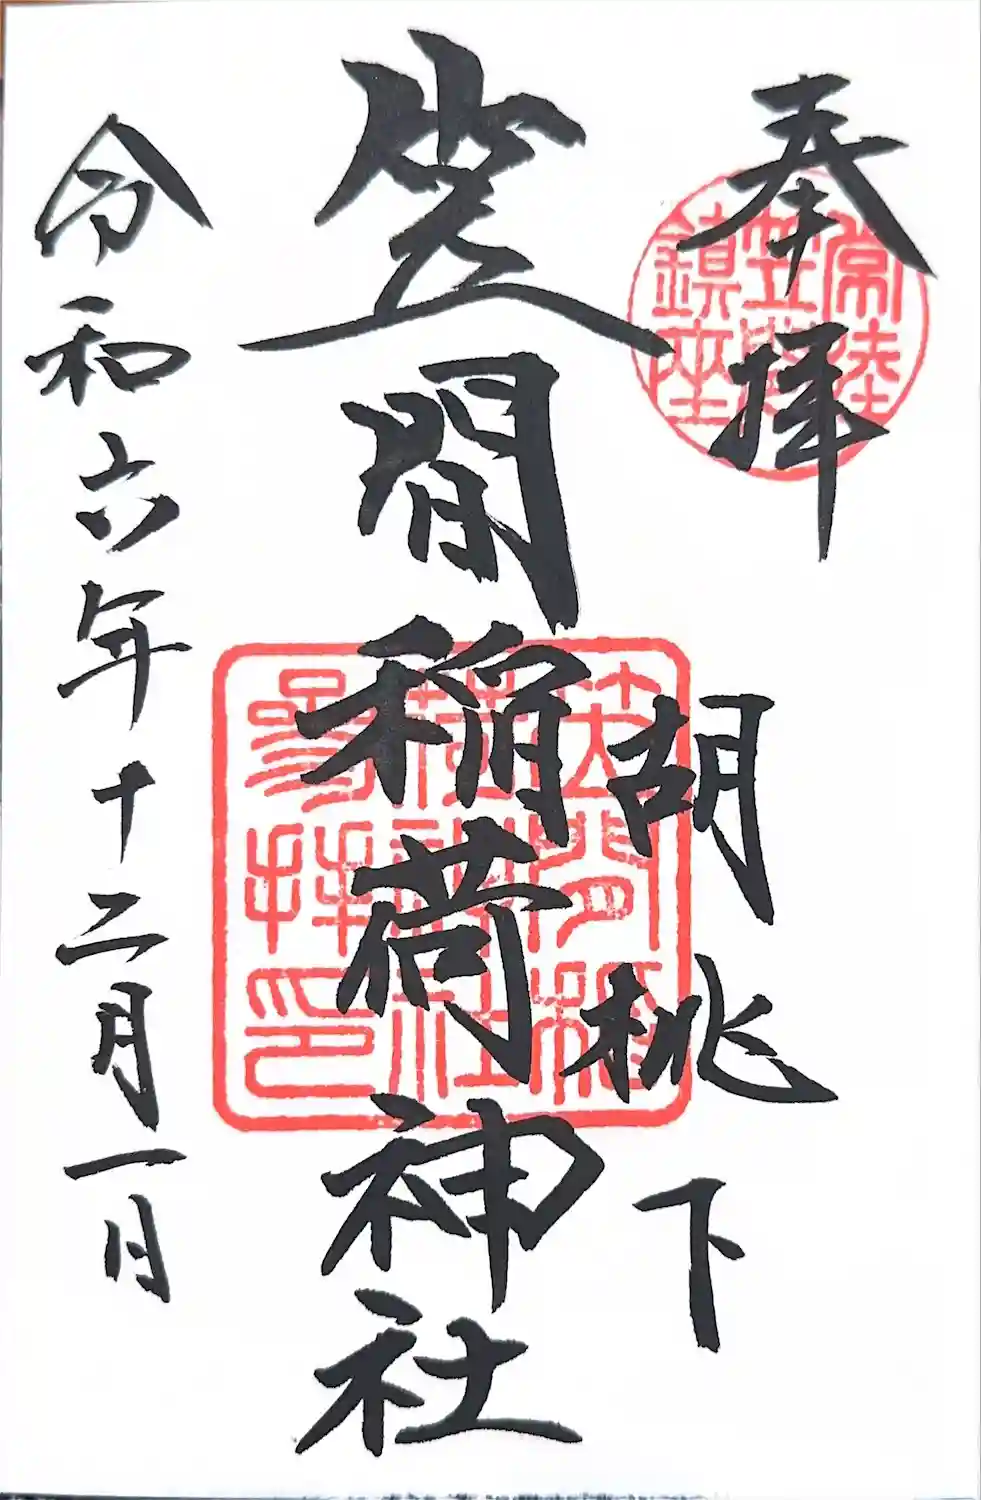 奉拝
常陸
笠間
鎮座
胡桃下
笠間稲荷神社
笠間稲
荷神社
参拝印
令和六年十二月一日